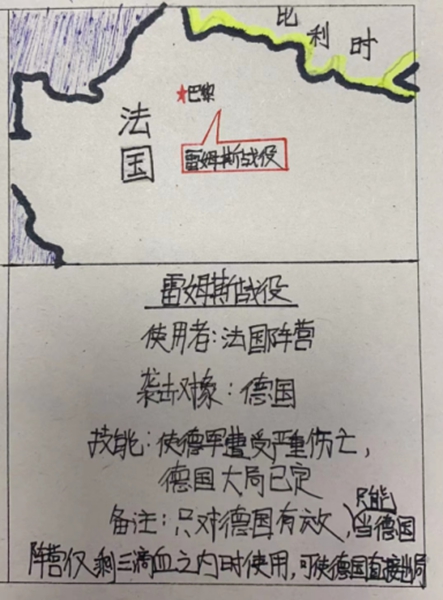 比利时
★巴黎
法国
雷姆斯战役
雷姆斯战役
使用者：法国阵营
袭击对象：德国
技能：使德军遭受严重伤亡，
德国大局已定
备注：只对德国有效，只能当德国
阵营仅剩三滴血之内时使用，可使德国直接出局